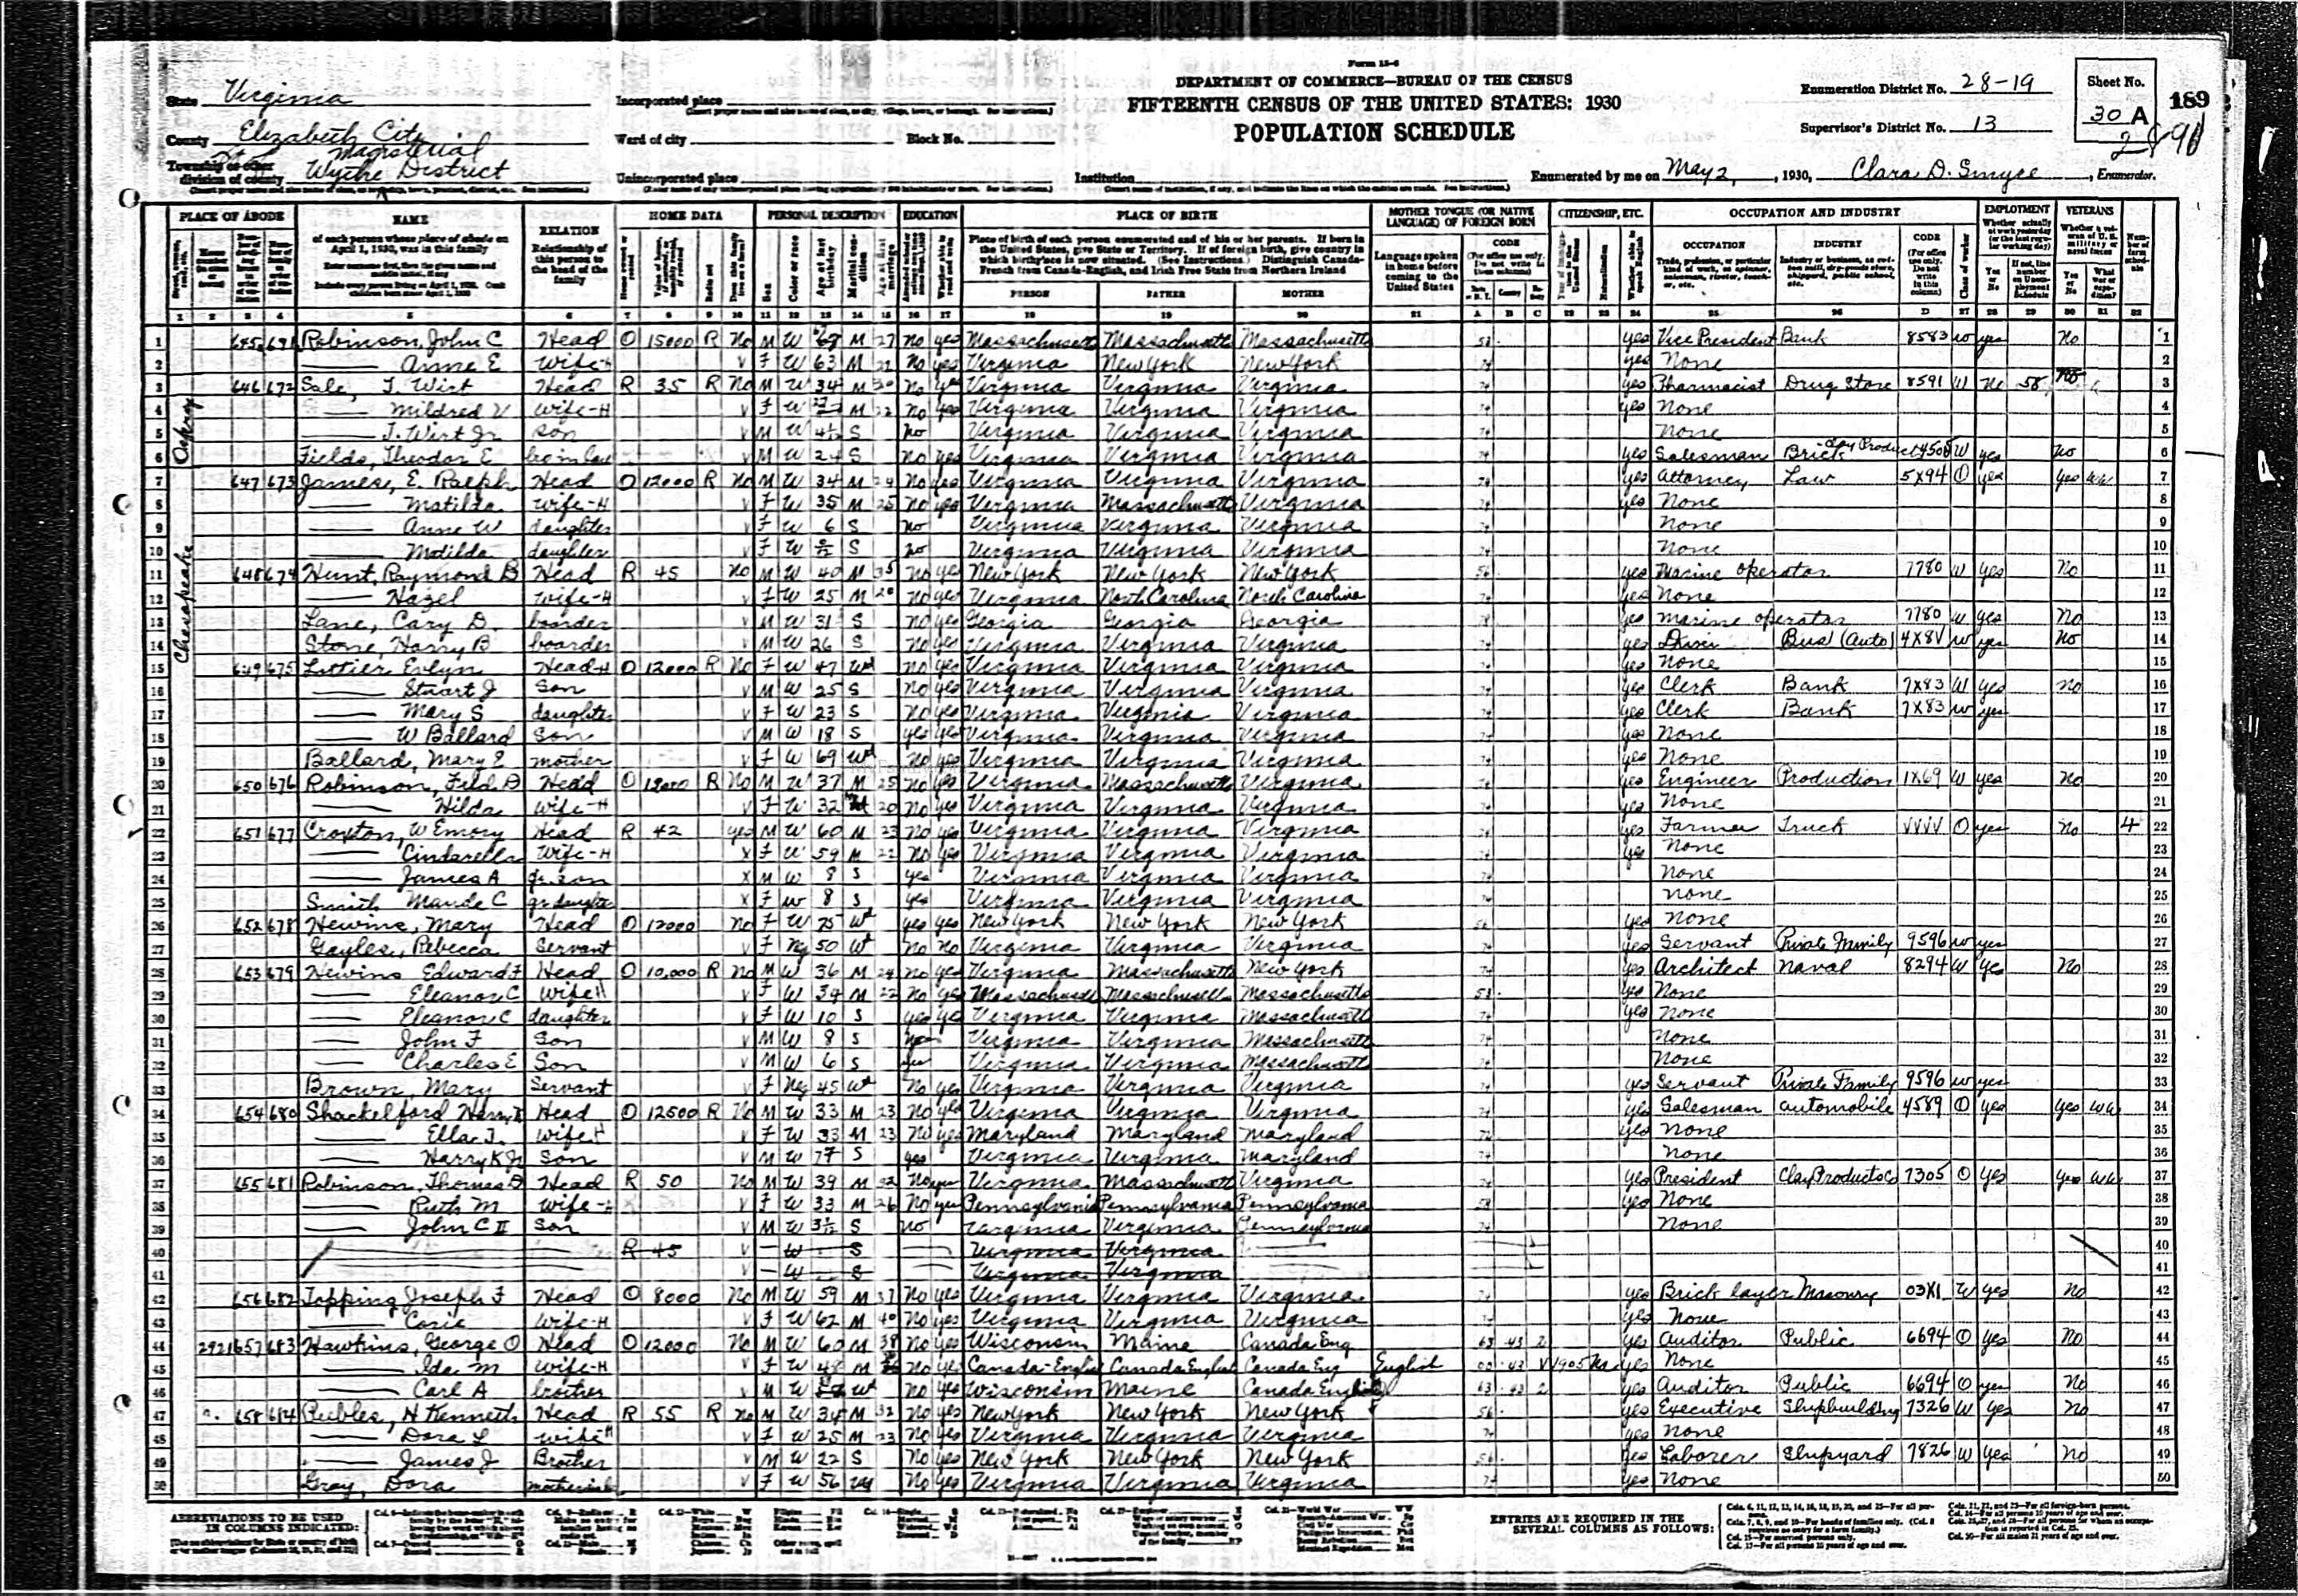 Form 15-6
DEPARTMENT OF COMMERCE—BUREAU OF THE CENSUS
FIFTEENTH CENSUS OF THE UNITED STATES: 1930
POPULATION SCHEDULE
State Virginia
County Elizabeth City
Township or other division of county Wythe Magisterial District
Incorporated place
Ward of city
Block No.
Unincorporated place
Institution
Enumeration District No. 28-19
Supervisor's District No. 13
Sheet No.
30 A
189
Enumerated by me on May 2, 1930, Clara D. , Enumerator.
PLACE OF ABODE NAME RELATION HOME DATA PERSONAL DESCRIPTION EDUCATION PLACE OF BIRTH MOTHER TONGUE (OR NATIVE LANGUAGE) OF FOREIGN BORN CITIZENSHIP, ETC. OCCUPATION AND INDUSTRY EMPLOYMENT VETERANS
of each person whose place of abode on April 1, 1930, was in this family
Relationship of this person to the head of the family
Place of birth of each person enumerated and of his or her parents. If born in the United States, give State or Territory. If of foreign birth, give country in which birthplace is now situated. (See Instructions.) Distinguish Canada-French from Canada-English, and Irish Free State from Northern Ireland
PERSON FATHER MOTHER
Language spoken in home before coming to the United States
CODE
OCCUPATION INDUSTRY CODE
Chesapeake
1 645 671 Robinson, John C Head O 15000 R No M W M 27 No yes Massachusetts Massachusetts Massachusetts 53 yes Vice President Bank 8583 W yes No 1
2 Anne E Wife-H V F W 63 M 22 No yes Virginia New York New York 74 yes None 2
3 646 672 Sale, T. Wirt Head R 35 R No M W 34 M 30 No yes Virginia Virginia Virginia 74 yes Pharmacist Drug Store 8591 W No 58 No 3
4 Mildred V Wife-H V F W 27 M 22 No yes Virginia Virginia Virginia 74 yes None 4
5 T. Wirt Jr son V M W S No Virginia Virginia Virginia 74 None 5
6 Fields, Theodor E V M W 24 S No yes Virginia Virginia Virginia 74 yes Salesman Brick Clay Product 4508 W yes No 6
7 647 673 James, E. Ralph Head O 12000 R No M W 34 M 24 No yes Virginia Virginia Virginia 74 yes Attorney Law 5X94 O yes yes WW 7
8 Matilda wife-H V F W 35 M 25 No yes Virginia Massachusetts Virginia 74 yes None 8
9 Anne W daughter V F W 6 S No Virginia Virginia Virginia 74 None 9
10 Matilda daughter V F W S No Virginia Virginia Virginia 74 None 10
11 648 674 Hunt, Raymond B Head R 45 No M W 40 M 35 No yes New York New York New York 56 yes Marine operator 7780 W yes No 11
12 Hazel wife-H V F W 25 M 20 No yes Virginia North Carolina North Carolina 74 yes None 12
13 Lane, Cary D. boarder V M W 31 S No yes Georgia Georgia Georgia yes marine operator 7780 W yes No 13
14 Stone, Harry B boarder V M W 26 S No yes Virginia Virginia Virginia 74 yes Driver Bus (Auto) 4X8V W yes No 14
15 649 675 Evelyn Head-H O 12000 R No F W 47 Wd No yes Virginia Virginia Virginia 74 yes None 15
16 Stuart J Son V M W 25 S No yes Virginia Virginia Virginia 74 yes Clerk Bank 7X83 W yes No 16
17 Mary S daughter V F W 23 S No yes Virginia Virginia Virginia 74 yes Clerk Bank 7X83 W yes 17
18 W Ballard Son V M W 18 S yes yes Virginia Virginia Virginia 74 yes None 18
19 Ballard, Mary E mother V F W 69 Wd No yes Virginia Virginia Virginia 74 yes None 19
20 650 676 Robinson, D Head O 12000 R No M W 37 M 25 No yes Virginia Massachusetts Virginia 74 yes Engineer Production 1X69 W yes No 20
21 Hilda Wife-H V F W 32 M 20 No yes Virginia Virginia Virginia 74 yes None 21
22 651 677 Croxton, W Emory Head R 42 yes M W 60 M 23 No yes Virginia Virginia Virginia 74 yes Farmer Truck VVVV O yes No 4 22
23 Cinderella Wife-H X F W 59 M 22 No yes Virginia Virginia Virginia 74 yes None 23
24 James A gr. son X M W 8 S yes Virginia Virginia Virginia 74 None 24
25 Smith Maude C gr daughter X F W 8 S yes Virginia Virginia Virginia 74 none 25
26 652 678 Hewins, Mary Head O 12000 No F W 75 Wd yes yes New York New York New York 56 yes None 26
27 Gayles, Rebecca Servant V F Neg 50 Wd No No Virginia Virginia Virginia 74 yes Servant Private Family 9596 W yes 27
28 653 679 Hewins Edward F Head O 10,000 R No M W 36 M 24 No yes Virginia Massachusetts New York 74 yes Architect Naval 8294 W yes No 28
29 Eleanor C Wife H V F W 34 M 22 No yes Massachusetts Massachusetts Massachusetts 53 yes None 29
30 Eleanor C daughter V F W 10 S yes yes Virginia Virginia Massachusetts 74 yes None 30
31 John F Son V M W 8 S yes Virginia Virginia Massachusetts 74 None 31
32 Charles E Son V M W 6 S yes Virginia Virginia Massachusetts 74 None 32
33 Brown, Mary Servant V F Neg 45 Wd No yes Virginia Virginia Virginia 74 yes Servant Private Family 9596 W yes 33
34 654 680 Shackelford Harry K Head O 12500 R No M W 33 M 23 No yes Virginia Virginia Virginia 74 yes Salesman automobile 4589 O yes yes WW 34
35 Ella T. wife H V F W 33 M 23 No yes Maryland Maryland Maryland 72 yes None 35
36 Harry K Jr Son V M W S yes Virginia Virginia Maryland 74 None 36
37 655 681 Robinson, Thomas D Head R 50 No M W 39 M 32 No yes Virginia Massachusetts Virginia 74 yes President Clay Products Co 7305 O yes yes WW 37
38 Ruth M wife-H V F W 33 M 26 No yes Pennsylvania Pennsylvania Pennsylvania 58 yes None 38
39 John C II son V M W S No Virginia Virginia Pennsylvania 74 None 39
40 R 45 V W S Virginia Virginia 40
41 V W S Virginia Virginia 41
42 656 682 Topping Joseph F Head O 8000 No M W 59 M 37 No yes Virginia Virginia Virginia 74 yes Brick layer Masonry 03X1 W yes No 42
43 wife-H V F W 62 M 40 No yes Virginia Virginia Virginia 74 yes None 43
44 292 657 683 Hawkins, George O Head O 12000 No M W 60 M 38 No yes Wisconsin Maine Canada Eng 63 43 2 yes Auditor Public 6694 O yes No 44
45 Ida M wife-H V F W 48 M No yes Canada-English Canada English Canada Eng English 00 43 V 1905 Na yes None 45
46 Carl A brother V M W Wd No yes Wisconsin Maine Canada English 63 43 2 yes Auditor Public 6694 O yes No 46
47 658 684 Peebles, H Kenneth Head R 55 R No M W 34 M 32 No yes New York New York New York 56 yes Executive Shipbuilding 7326 W yes No 47
48 Dora L wife H V F W 25 M 23 No yes Virginia Virginia Virginia 74 yes None 48
49 James J Brother V M W 22 S No yes New York New York New York 56 yes Laborer Shipyard 7826 W yes No 49
50 Gray, Dora V F W 56 No yes Virginia Virginia Virginia 74 yes None 50
ABBREVIATIONS TO BE USED IN COLUMNS INDICATED:
ENTRIES ARE REQUIRED IN THE SEVERAL COLUMNS AS FOLLOWS: